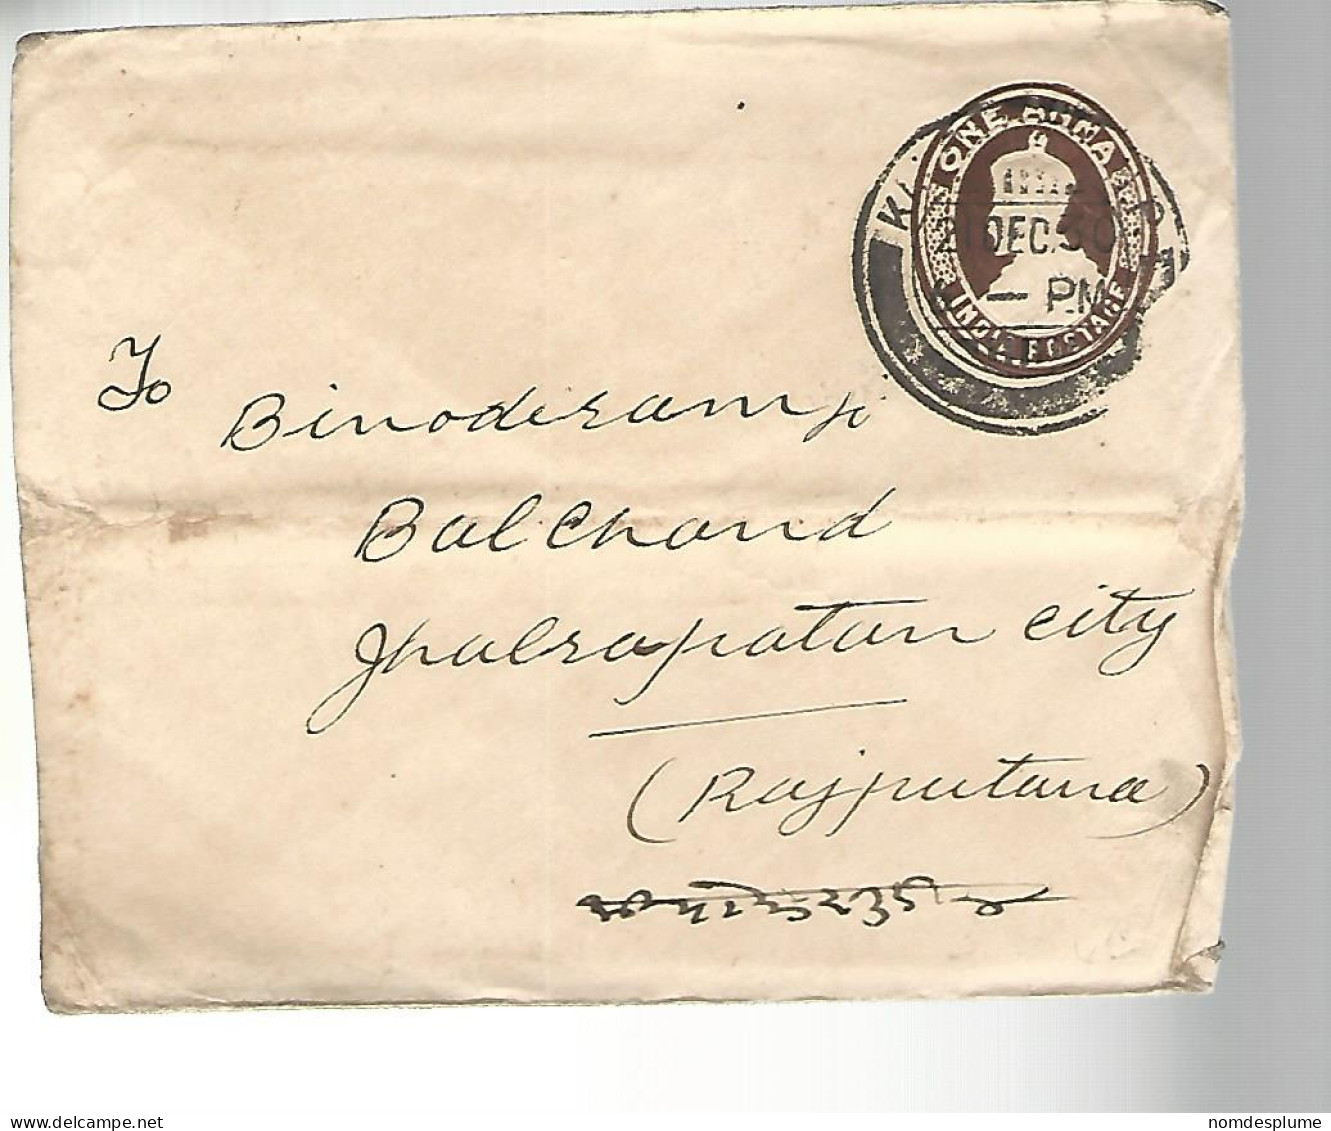 ONE ANNA
21 DEC.30
— P.M
INDIA POSTAGE
To
Binoderam ji
Balchand
Jhalrapatan city
(Rajputana)
www.delcampe.net
nomdesplume